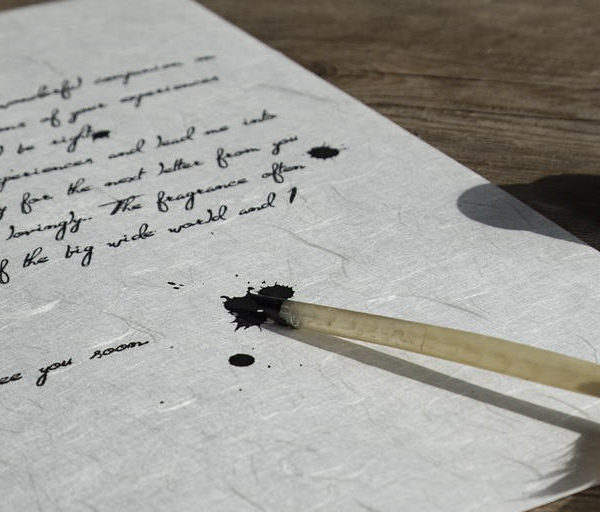 wonderful companion on
of your experiences
be right
periences and lead me into
y for the next letter from you
lovingly. The fragrance often
f the big wide world and I
ee you soon